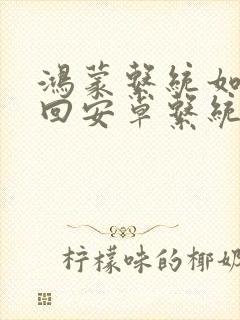 鸿蒙繫統如
回安卓繫統
柠檬味的椰奶